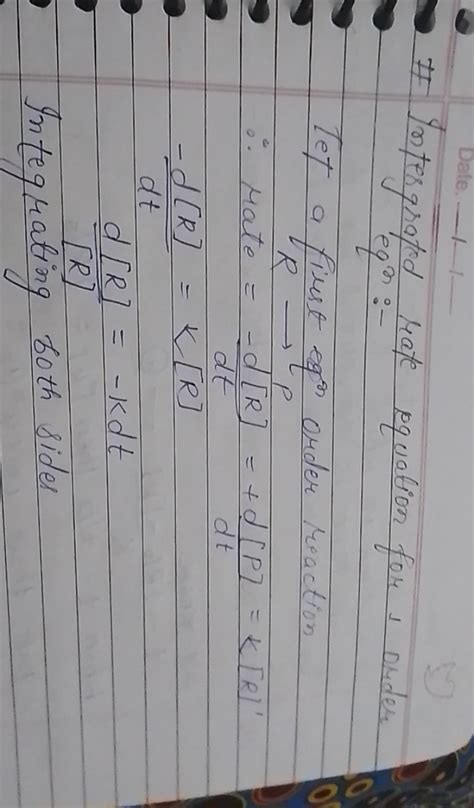 Date. — / — / —
# Intergrated rate equation for 1 order
eqⁿ :-
Let a first eqⁿ order reaction
R → P
∴ rate = -d[R]/dt = +d[P]/dt = K[R]'
-d[R]/dt = K[R]
d[R]/[R] = -Kdt
Integrating both sides